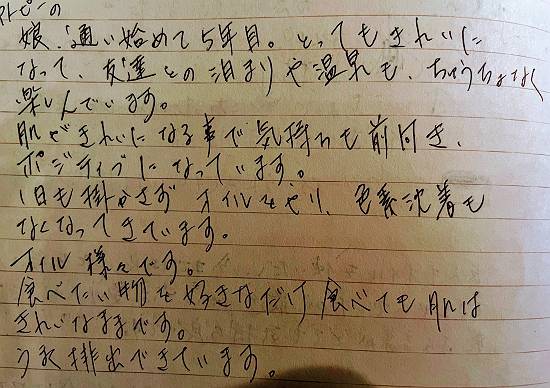 アトピーの
娘、通い始めて5年目。とってもきれいに
なって、友達との泊まりや温泉も、ちゅうちょなく
楽しんでいます。
肌がきれいになる事で気持ちも前向き、
ポジティブになっています。
1日も掛かさず オイルをやり、色素沈着も
なくなってきています。
オイル様々です。
食べたい物を好きなだけ食べても肌は
きれいなままです。
うまく排出できています。